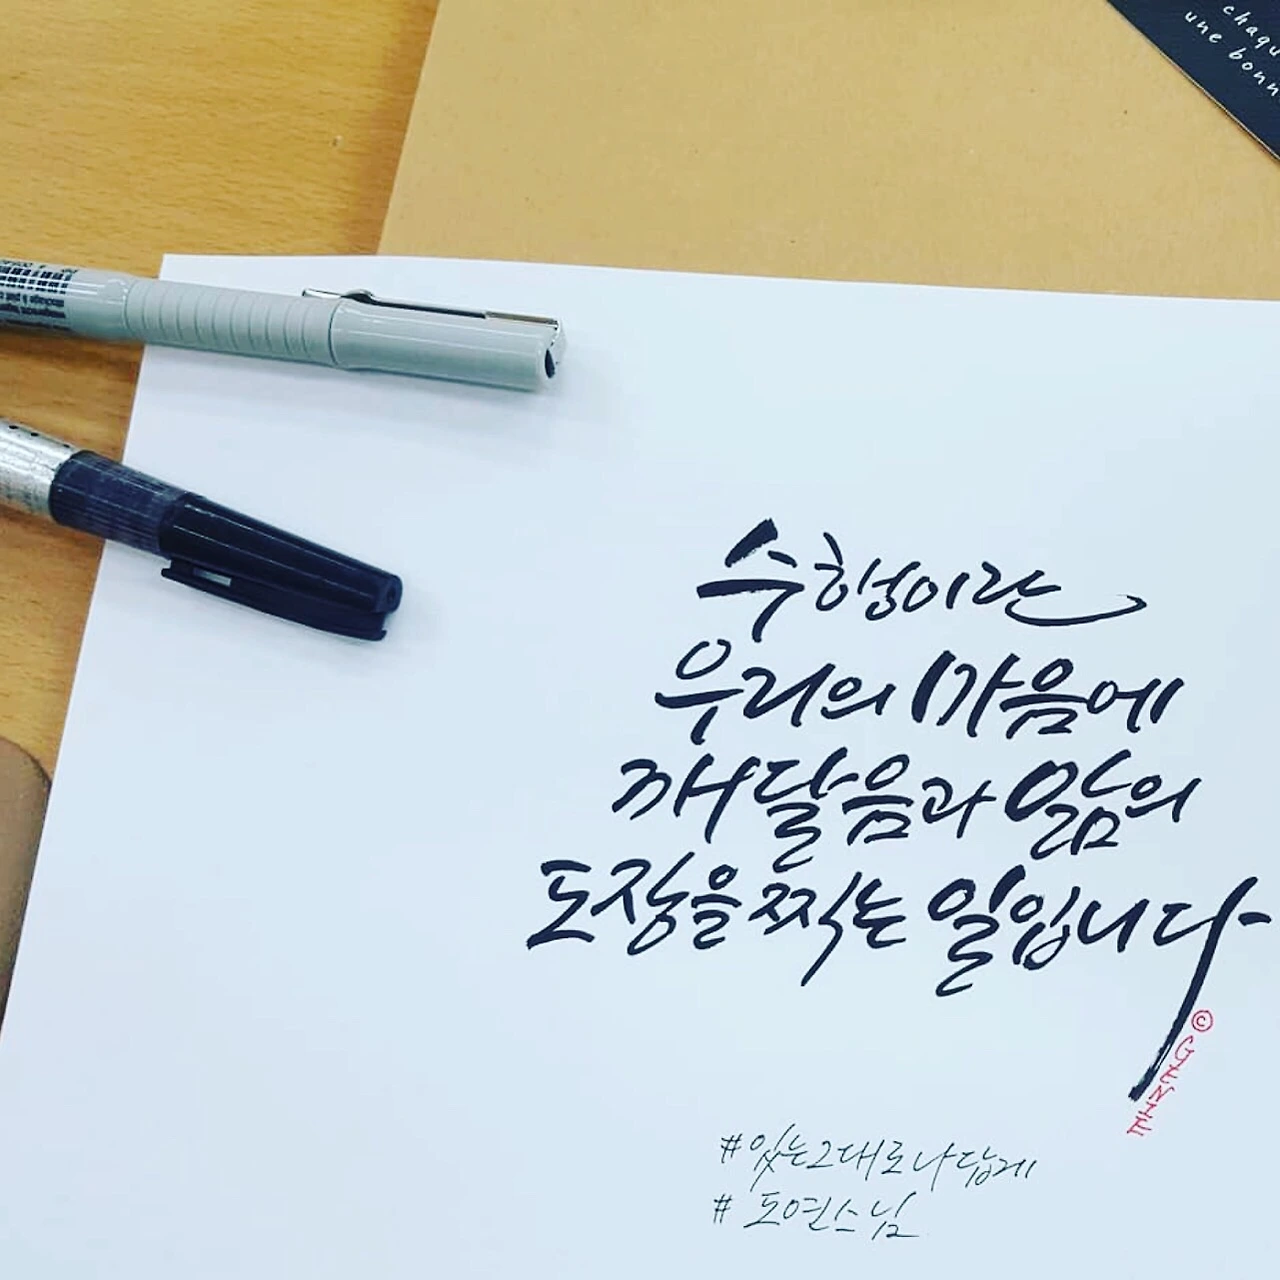 chaqu
une bonn
수행이란
우리의 마음에
깨달음과 앎의
도장을 찍는 일입니다
© GENIE
#있는그대로나답게
#도연스님